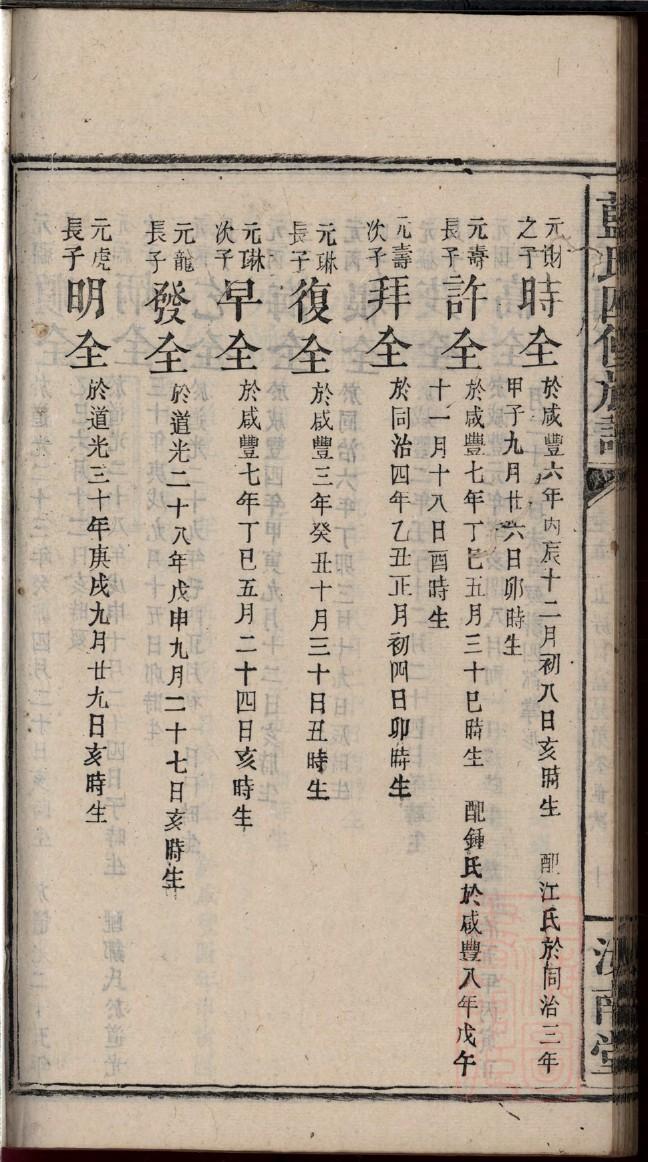 藍氏四修族譜
汝南堂
元財之子時全 於咸豐六年丙辰十二月初八日亥時生 配江氏於同治三年
甲子九月廿六日卯時生
元壽長子許全 於咸豐七年丁巳五月三十巳時生 配鍾氏於咸豐八年戊午
十一月十八日酉時生
元壽次子拜全 於同治四年乙丑正月初四日卯時生
元琳長子復全 於咸豐三年癸丑十月三十日丑時生
元琳次子早全 於咸豐七年丁巳五月二十四日亥時生
元龍長子發全 於道光二十八年戊申九月二十七日亥時生
元虎長子明全 於道光三十年庚戌九月廿九日亥時生